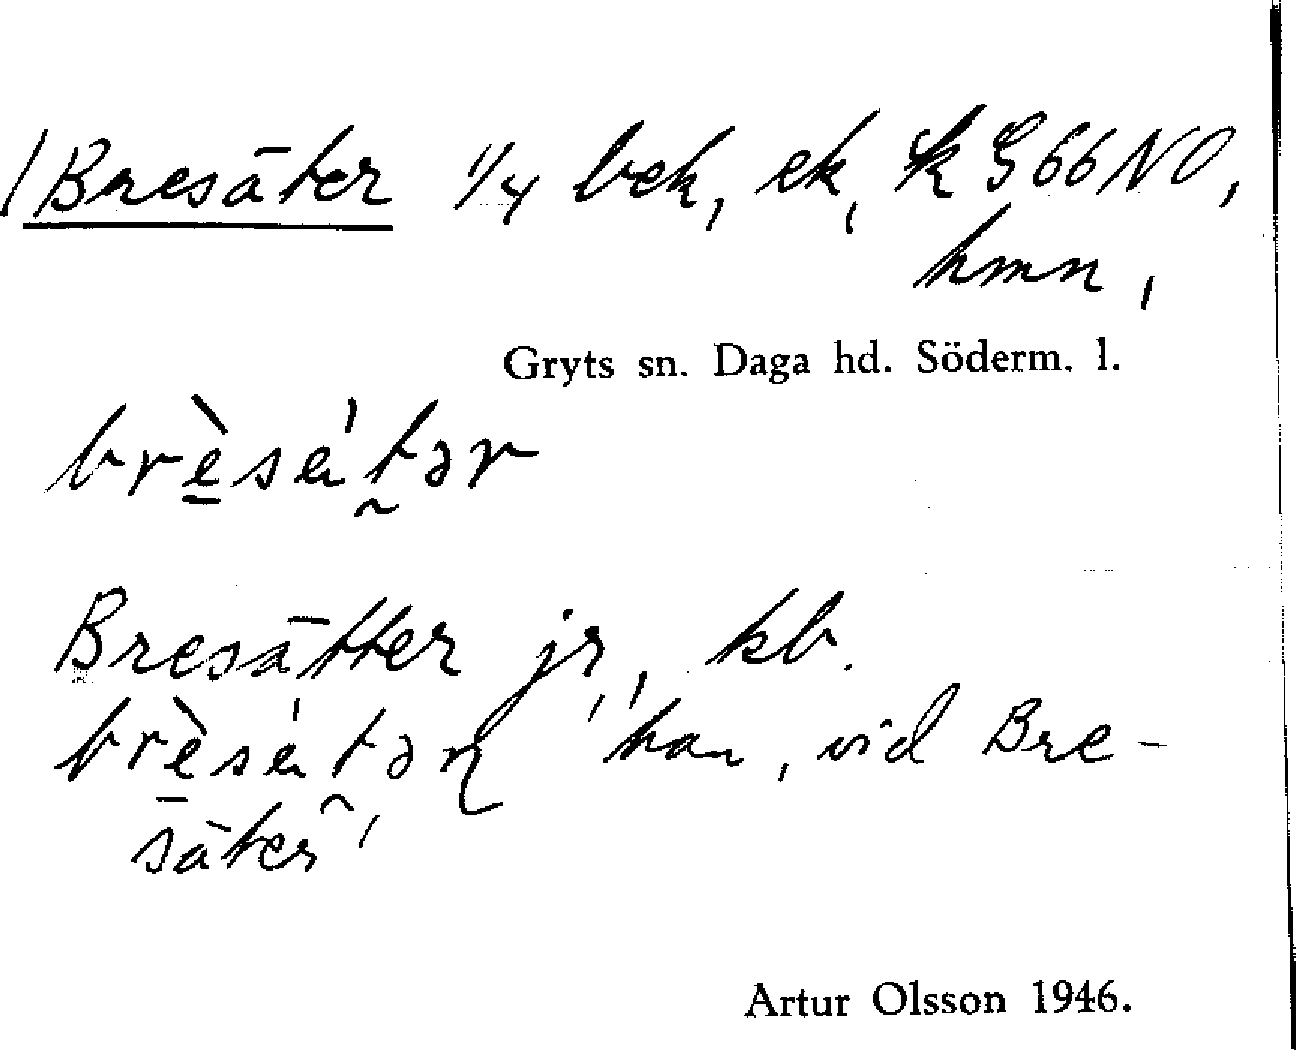 /Bresäter 1/4 bek, ek, k G66NO,
hmn,
Gryts sn. Daga hd. Söderm. l.
brèsátər
Bresätter jr, kb.
brèsátər han, vid Bre-
säter
Artur Olsson 1946.